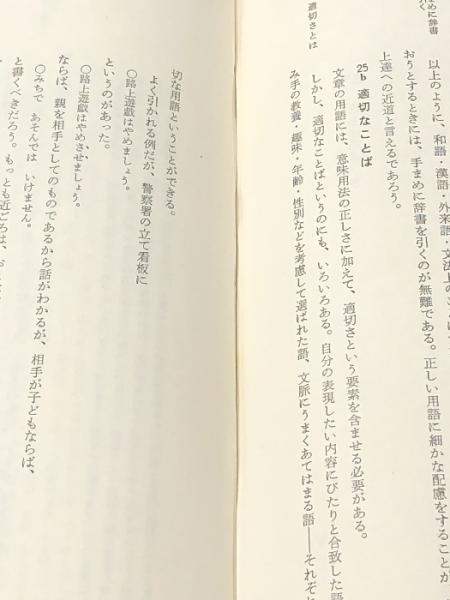 まめに辞書
引く
適切さとは
以上のように、和語・漢語・外来語・文法上の
おうとするときには、手まめに辞書を引くのが無難である。正しい用語に細かな配慮をすることが
上達への近道と言えるであろう。
25b 適切なことば
文章の用語には、意味用法の正しさに加えて、適切さという要素を含ませる必要がある。
しかし、適切なことばというのにも、いろいろある。自分の表現したい内容にぴたりと合致した語
み手の教養・趣味・年齢・性別などを考慮して選ばれた語、文脈にうまくあてはまる語――それぞれ
切な用語ということができる。
よく引かれる例だが、警察署の立て看板に
○路上遊戯はやめましょう。
というのがあった。
○路上遊戯はやめさせましょう。
ならば、親を相手としてのものであるから話がわかるが、相手が子どもならば、
○みちで あそんでは いけません。
と書くべきだろう。もっとも近ごろは、